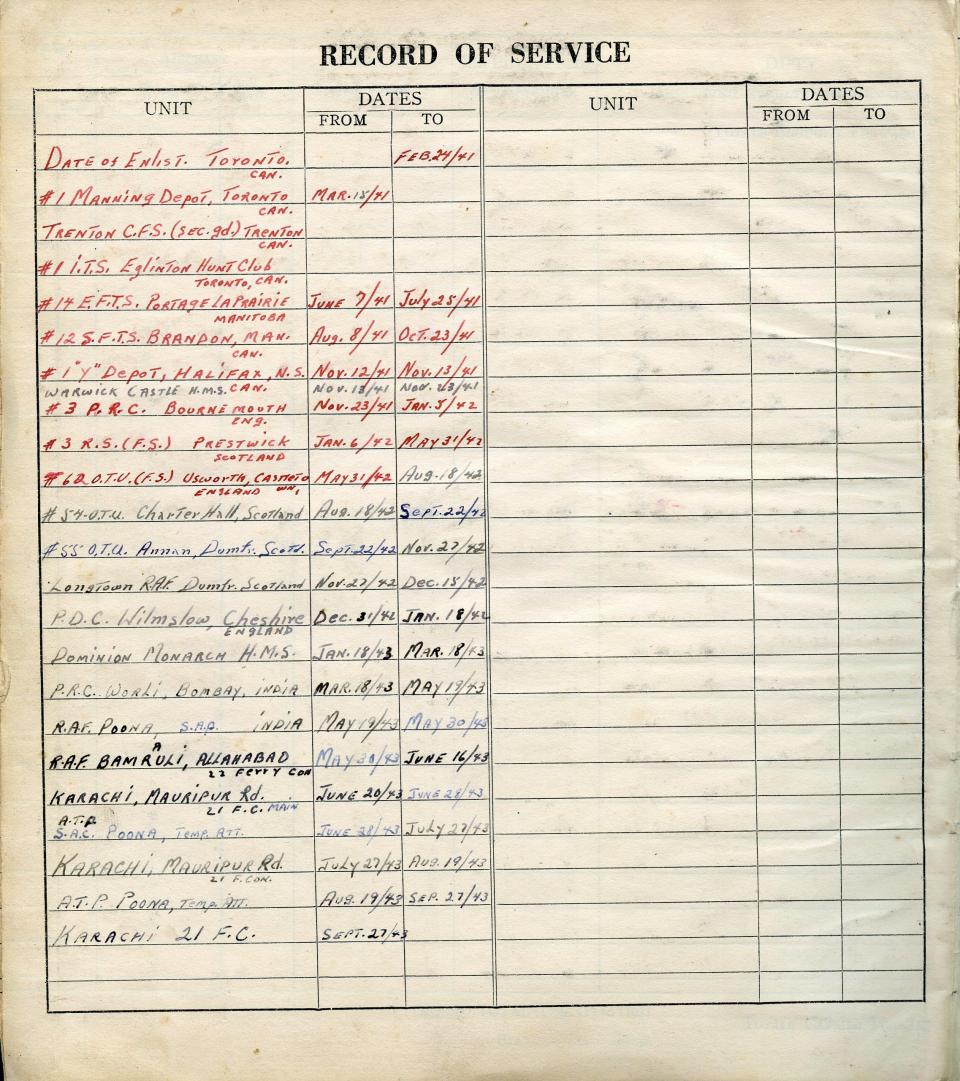 RECORD OF SERVICE
UNIT DATES UNIT DATES
FROM TO FROM TO
DATE of ENlisT. TORONTO. FEB.24/41
CAN.
#1 MANNING DEPOT, TORONTO MAR.15/41
CAN.
TRENTON C.F.S. (SEC.gd.) TRENTON
CAN.
#1 I.T.S. Eglinton Hunt Club
TORONTO, CAN.
#14 E.F.T.S. PORTAGE LA PRAIRIE JUNE 7/41 July 25/41
MANITOBA
#12 S.F.T.S. BRANDON, MAN. Aug. 8/41 Oct.23/41
CAN.
#1 "Y" DEPOT, HALIFAX, N.S. Nov.12/41 Nov.13/41
WARWICK CASTLE H.M.S. CAN. Nov.13/41 Nov.23/41
#3 P.R.C. BOURNEMOUTH Nov.23/41 JAN.5/42
ENG.
#3 R.S.(F.S.) PRESTWICK JAN.6/42 MAY 31/42
SCOTLAND
#62 O.T.U.(F.S.) USWORTH, CASTLETO MAY 31/42 Aug.18/42
ENGLAND WN,
#54 O.T.U. Charter Hall, Scotland Aug.18/42 Sept.22/42
#55 O.T.U. Annan, Dumfr. Scotl. Sept.22/42 Nov.27/42
Longtown R.A.F. Dumfr. Scotland Nov.27/42 Dec.15/42
P.D.C. Wilmslow, Cheshire Dec.31/42 JAN.18/42
ENGLAND
DOMINION MONARCH H.M.S. JAN.18/43 MAR.18/43
P.R.C. WORLI, BOMBAY, INDIA MAR.18/43 MAY 19/43
R.A.F. POONA, S.A.C. INDIA MAY 19/43 MAY 30/43
R.A.F. BAMRAULI, ALLAHABAD MAY 30/43 JUNE 16/43
22 FERRY CON
KARACHI, MAURIPUR Rd. JUNE 20/43 JUNE 28/43
21 F.C. MAIN
A.T.P.
S.A.C. POONA, TEMP. ATT. JUNE 28/43 JULY 27/43
KARACHI, MAURIPUR Rd. JULY 27/43 AUG.19/43
21 F.CON.
A.T.P. POONA, TEMP. ATT. AUG.19/43 SEP.27/43
KARACHI 21 F.C. SEPT.27/43